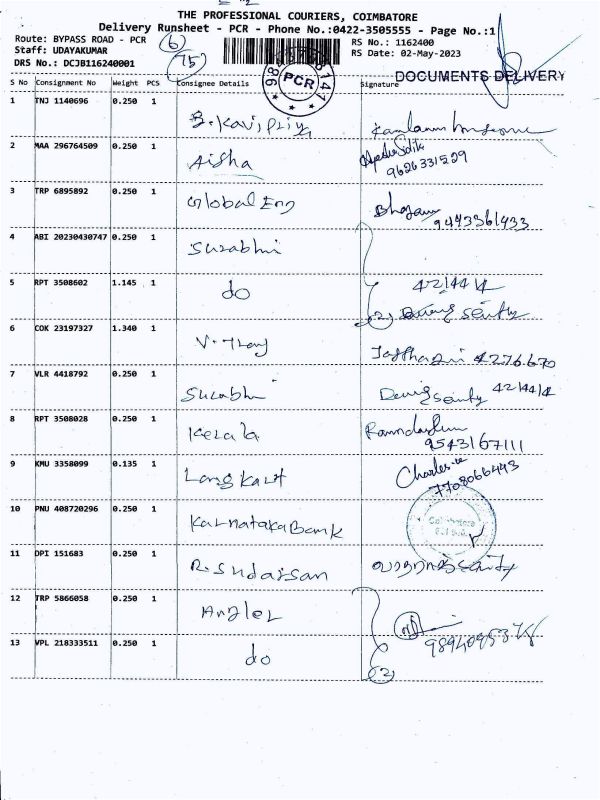 THE PROFESSIONAL COURIERS, COIMBATORE
Delivery Runsheet - PCR - Phone No.:0422-3505555 - Page No.:1
Route: BYPASS ROAD - PCR
RS No.: 1162400
Staff: UDAYAKUMAR
RS Date: 02-May-2023
DRS No.: DCJB116240001
6
75
PCR
DOCUMENTS DELIVERY
S No Consignment No Weight PCS Consignee Details Signature
1 TNJ 1140696 0.250 1 B. Kavi Priya
2 MAA 296764509 0.250 1 Aisha 9626331529
3 TRP 6895892 0.250 1 Global Eng 9443361433
4 ABI 20230430747 0.250 1 Surabhi
5 RPT 3508602 1.145 1 do 4214414
(2)
6 COK 23197327 1.340 1 4276670
7 VLR 4418792 0.250 1 Surabhi 4214414
8 RPT 3508028 0.250 1 Kerala 9543167111
9 KMU 3358099 0.135 1 Lang Kart Charles 7708066443
10 PNU 408720296 0.250 1 Karnataka Bank
11 DPI 151683 0.250 1 R. Sudarsan
12 TRP 5866058 0.250 1 Angler
13 VPL 218333511 0.250 1 do
(2)